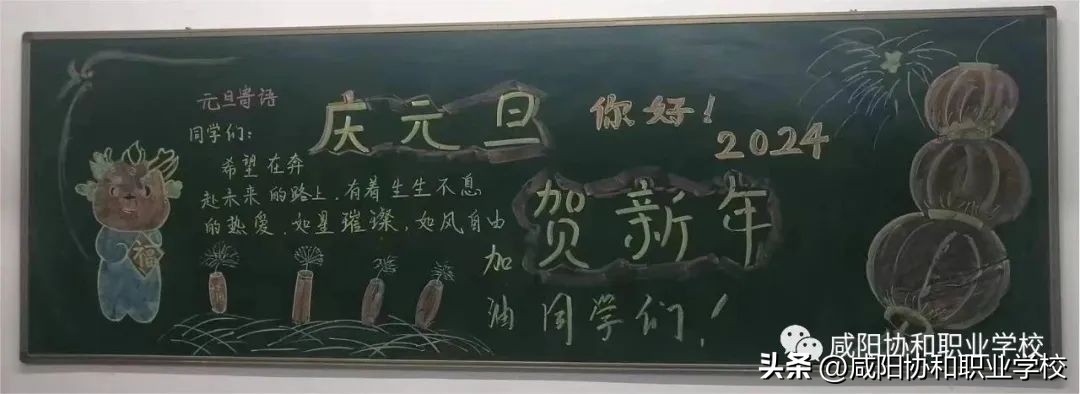 元旦寄语
同学们:
希望在奔
赴未来的路上,有着生生不息
的热爱,如星璀璨,如风自由
庆元旦
你好!
2024
贺新年
加
油同学们!
福
咸阳协和职业学校
头条@咸阳协和职业学校